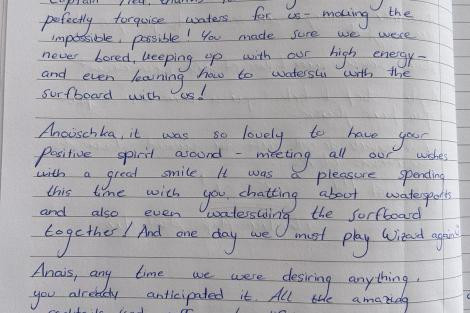 Captain
pefectly torquise waters for us - making the
impossible, possible! You made sure we were
never bored, keeping up with our high energy -
and even learning how to waterski with the
surfboard with us!
Anouschka, it was so lovely to have your
positive spirit around - meeting all our wishes
with a great smile. It was a pleasure spending
this time with you, chatting about watersports
and also even waterskiing the surfboard
together! And one day we must play Wizard again!
Anais, any time we were desiring anything,
you already anticipated it. All the amazing